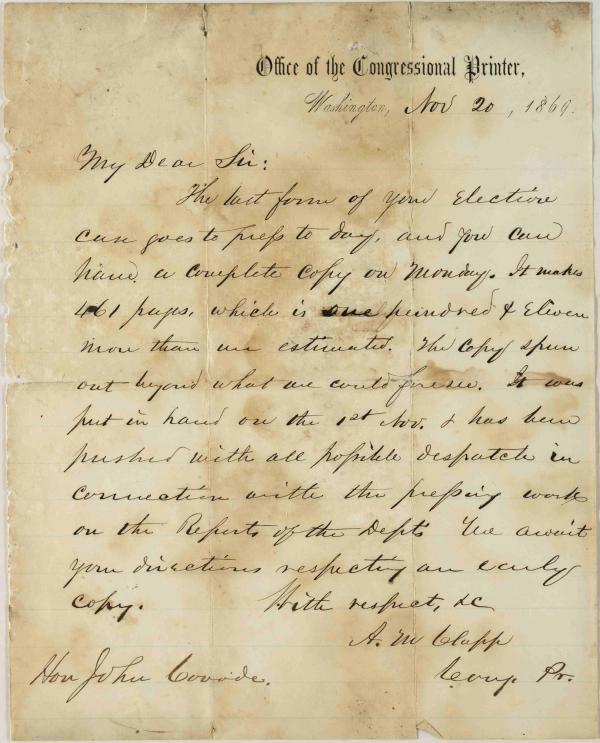 Office of the Congressional Printer,
Washington, Nov 20, 1869.
My Dear Sir:
The last form of your Election
case goes to press to day, and you can
have a complete copy on Monday. It makes
461 pages, which is one hundred & Eleven
more than we estimated. The Copy spun
out beyond what we could foresee. It was
put in hand on the 1st Nov. & has been
pushed with all possible despatch in
connection with the pressing work
on the Reports of the Depts We await
your directions respecting an early
copy. With respect, &c
A. M Clapp
Hon John Covode. Cong. Pr.